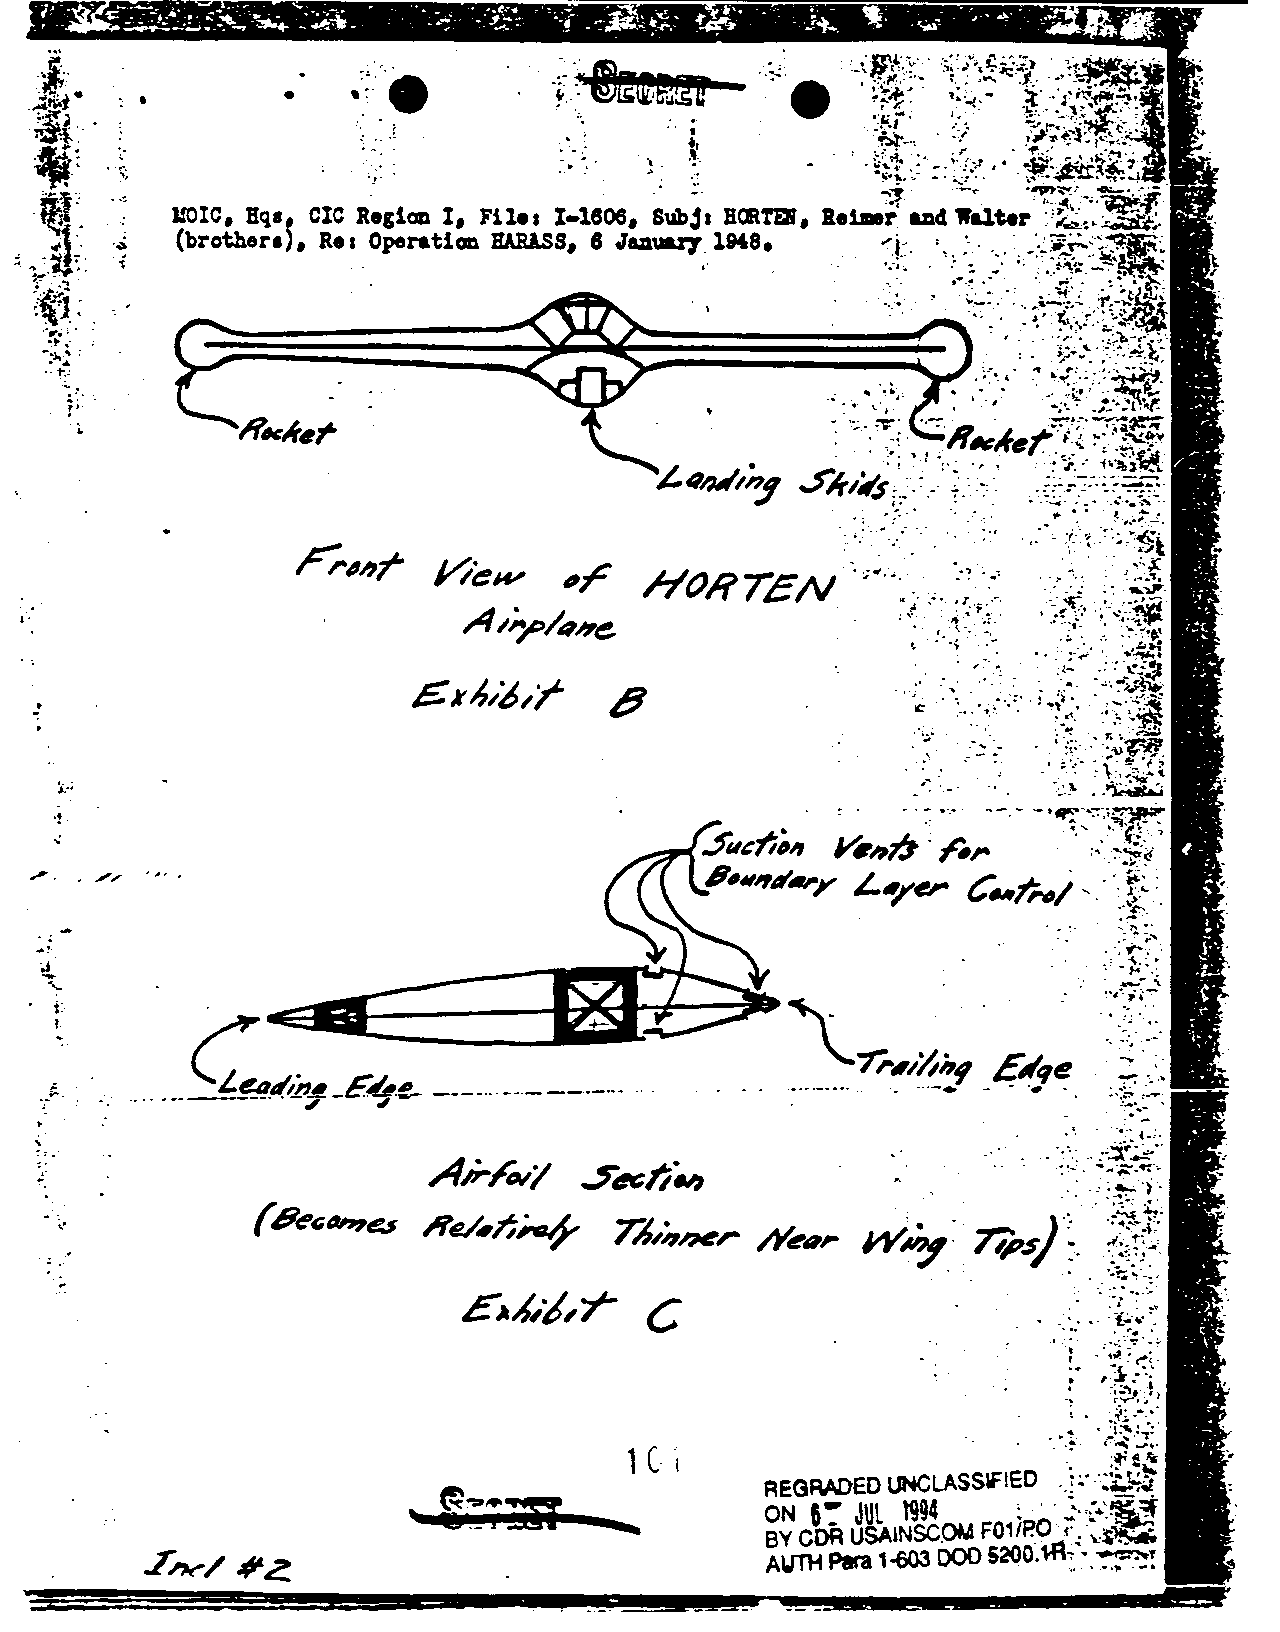 SECRET
MOIC, Hqs, CIC Region I, File: I-1606, Subj: HORTEN, Reimer and Walter
(brothers), Re: Operation HARASS, 6 January 1948.
Rocket
Rocket
Landing Skids
Front View of HORTEN
Airplane
Exhibit B
Suction Vents for
Boundary Layer Control
Leading Edge
Trailing Edge
Airfoil Section
(Becomes Relatively Thinner Near Wing Tips)
Exhibit C
SECRET
REGRADED UNCLASSIFIED
ON 6 JUL 1994
BY CDR USAINSCOM F01/PO
AUTH Para 1-603 DOD 5200.1R
Incl #2